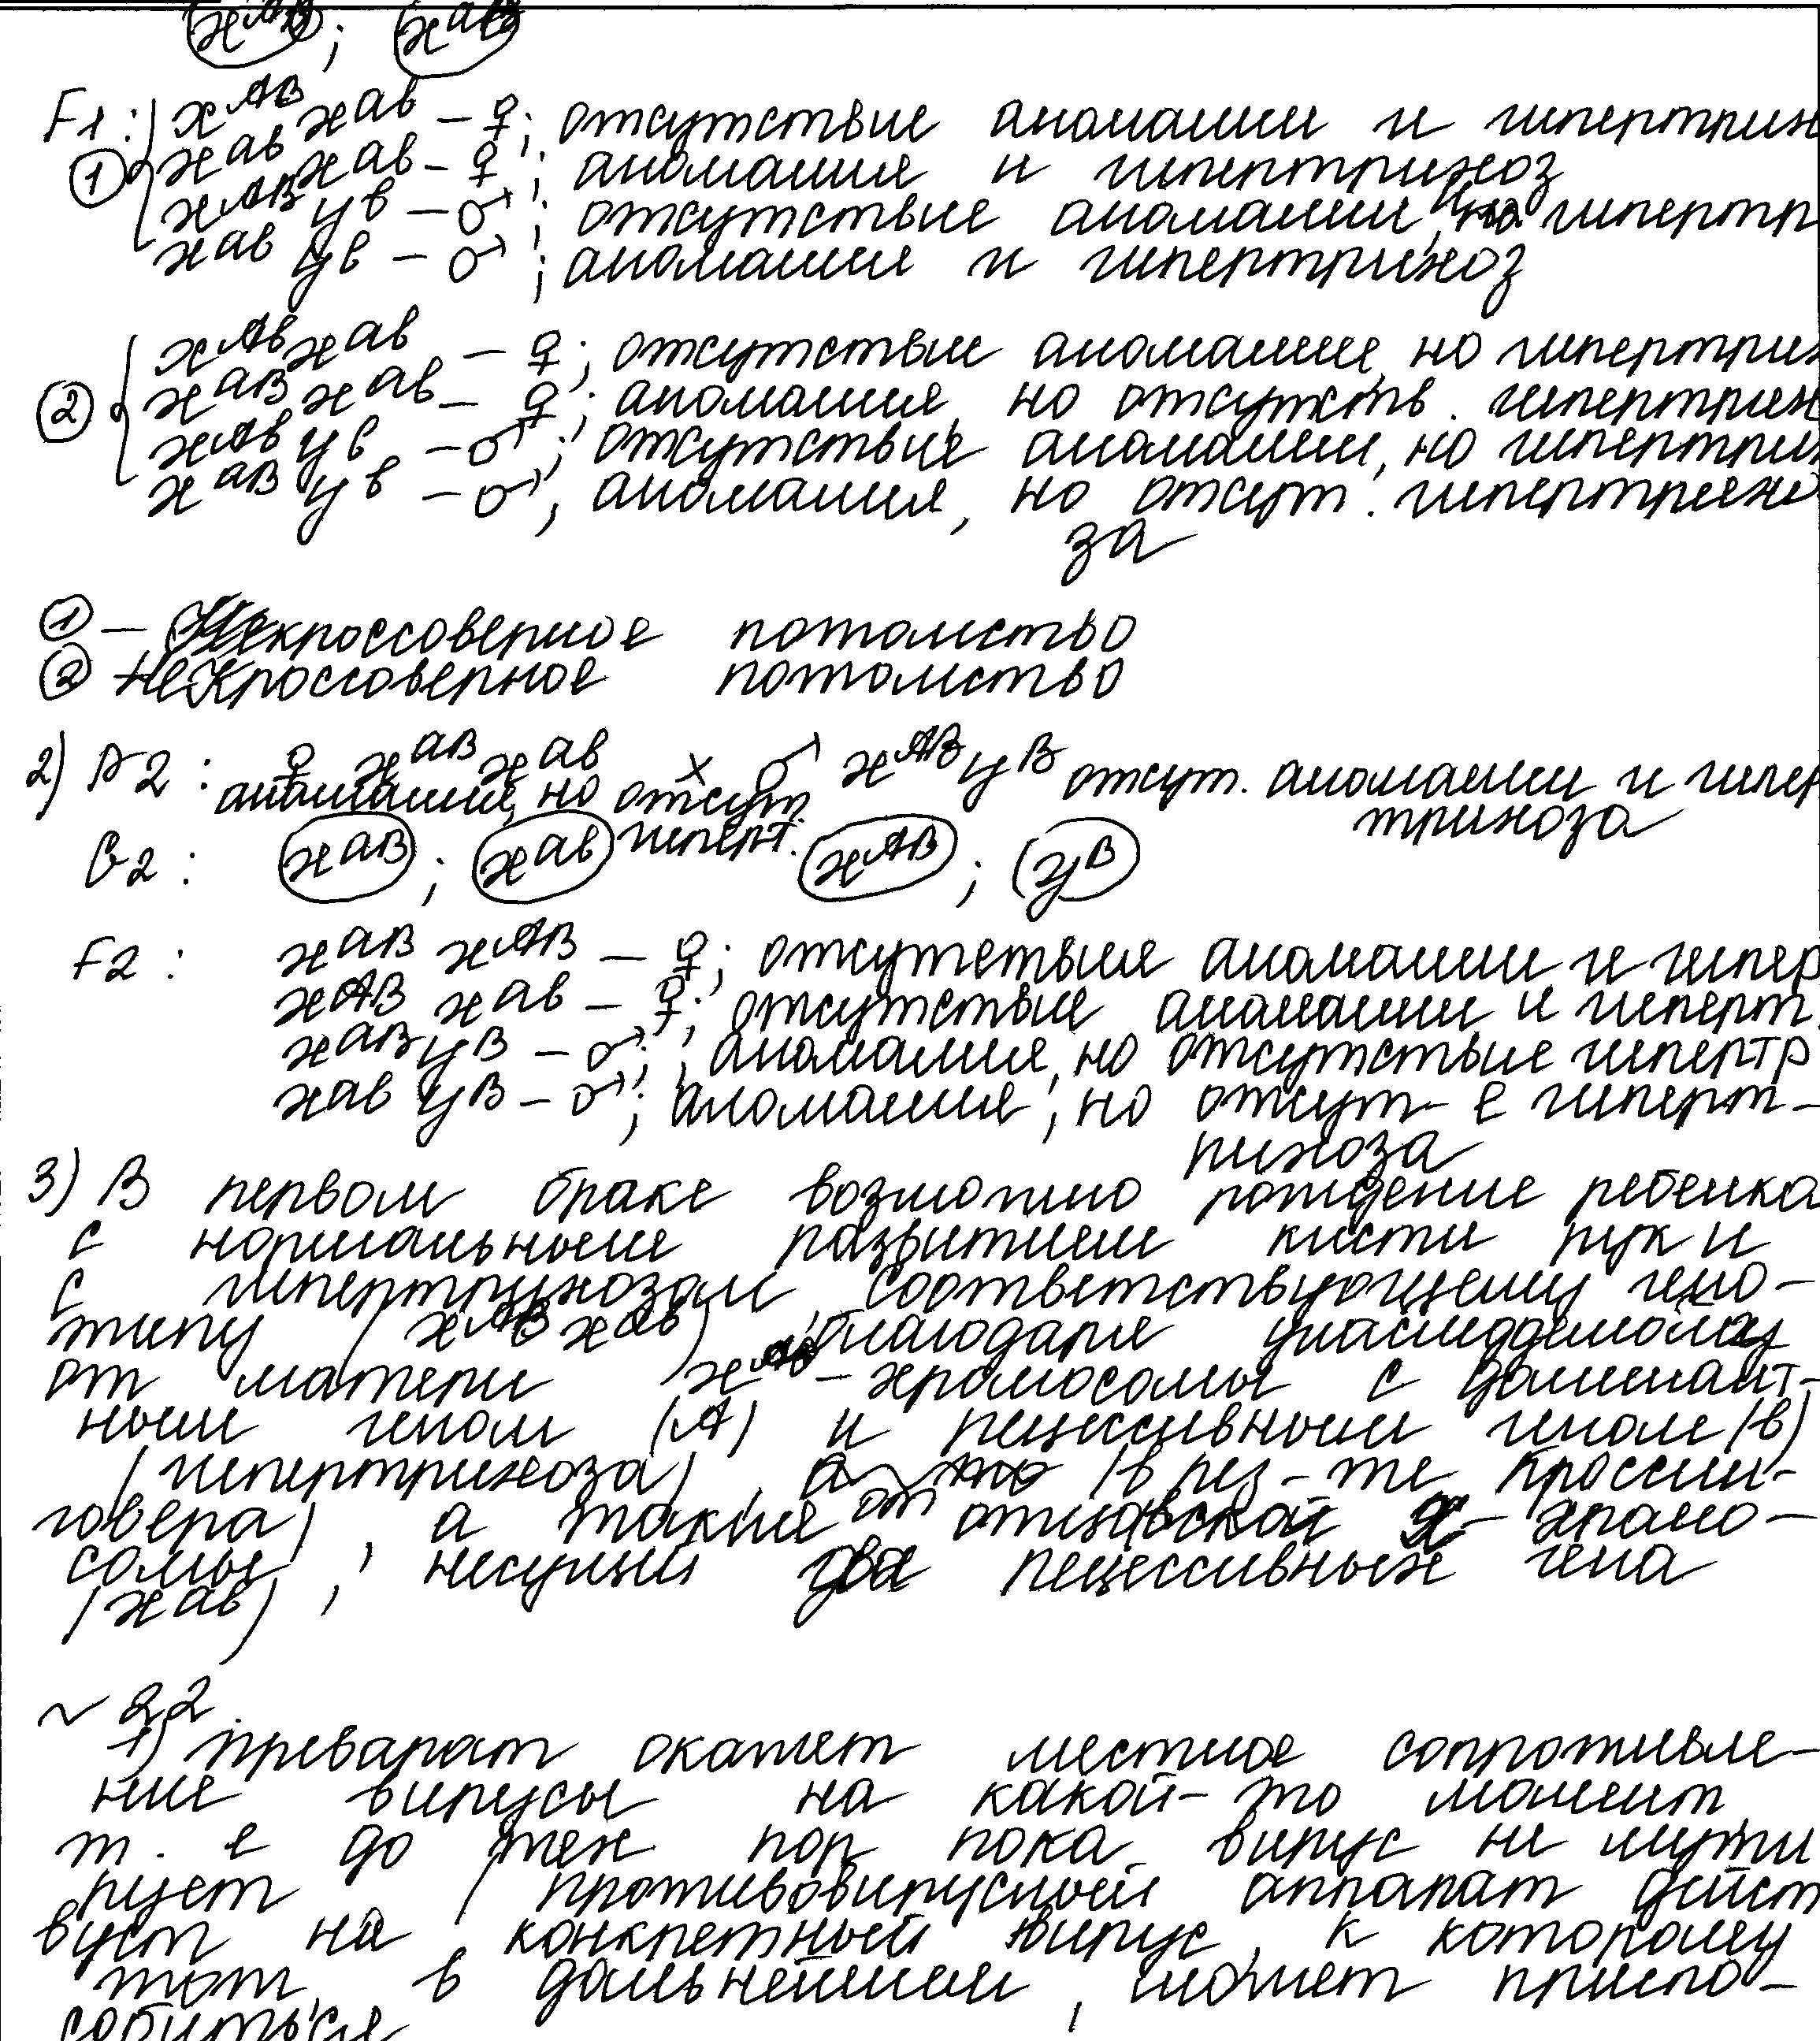 xᴬᴮ ; xᵃᵇ
F1 : xᴬᴮ xᵃᵇ – ♀; отсутствие аномалии и гипертрих
① xᵃᵇ xᵃᵇ – ♀; аномалия и гипертрихоз
xᴬᴮ yᵇ – ♂; отсутствие аномалии, гипертр
xᵃᵇ yᵇ – ♂; аномалия и гипертрихоз
xᴬᵇ xᵃᵇ – ♀; отсутствие аномалии, но гипертрих
② xᵃᴮ xᵃᵇ – ♀; аномалия, но отсутств. гипертрих
xᴬᵇ yᵇ – ♂; отсутствие аномалии, но гипертрих
xᵃᴮ yᵇ – ♂; аномалия, но отсут. гипертрихо
за
① – кроссоверное потомство
② некроссоверное потомство
2) P2 : ♀ xᵃᴮ xᵃᵇ × ♂ xᴬᴮ yᴮ отсут. аномалии и гипер
аномалия, но отсут. гиперт. трихоза
G2 : xᵃᴮ ; xᵃᵇ xᴬᴮ ; yᴮ
F2 : xᵃᴮ xᴬᴮ – ♀; отсутствия аномалии и гипер
xᴬᴮ xᵃᵇ – ♀; отсутствие аномалии и гиперт.
xᵃᴮ yᴮ – ♂; аномалия, но отсутствие гипертр
xᵃᵇ yᴮ – ♂; аномалия, но отсут-е гиперт-
рихоза
3) В первом браке возможно рождение ребенка
с нормальным развитием кисти рук и
с гипертрихозом, соответствующему гено-
типу (xᴬᵇ xᵃᵇ) благодаря унаследдемой
от матери x – хромосомы с доминант-
ным геном (А) и рецессивным геном (в)
(гипертрихоза), (в рез-те кроссин-
говера), а также от отцовской х- хромо-
сомы, несущий два рецессивных гена
(xᵃᵇ)
~ 22.
1) преварат окажет местное сопротивле-
ние вирусы на какой-то момент
т. е до тех пор пока вирус не мути
рует (противовирусный аппарат дейст
вует на конкретный вирус, к которому
тот, в дальнейшем, может приспо-
собиться